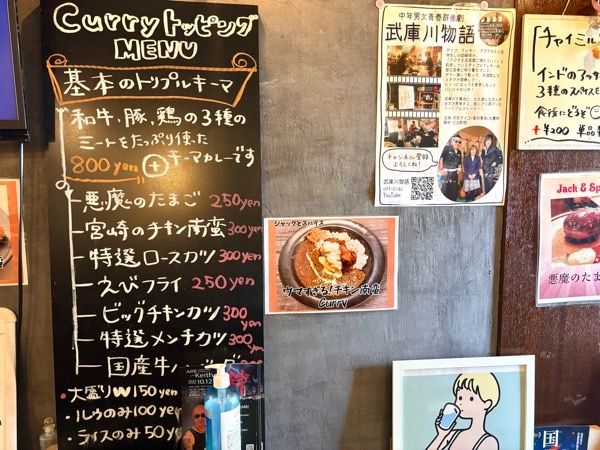 Curry トッピング
MENU
基本のトリプルキーマ
和牛、豚、鶏の3種の
ミートをたっぷり使った
800yen + キーマカレーです
悪魔のたまご 250yen
宮崎のチキン南蛮 300yen
特選ロースカツ 300yen
えびフライ 250yen
ビッグチキンカツ 300yen
特選メンチカツ 300yen
国産牛ハ
・大盛りW150yen
・ルゥのみ100yen
・ライスのみ50yen
中年男女青春群像劇
武庫川物語
チャンネル登録
よろしくね!
武庫川物語
official
YouTube
ジャックとスパイス
ウマすぎる!チキン南蛮
Curry
「チャイミル
インドのアッサ
3種のスパイスを
食後にどうぞ
+¥200 単品
Jack & Sp
悪魔のたま
Keith
10.12
国